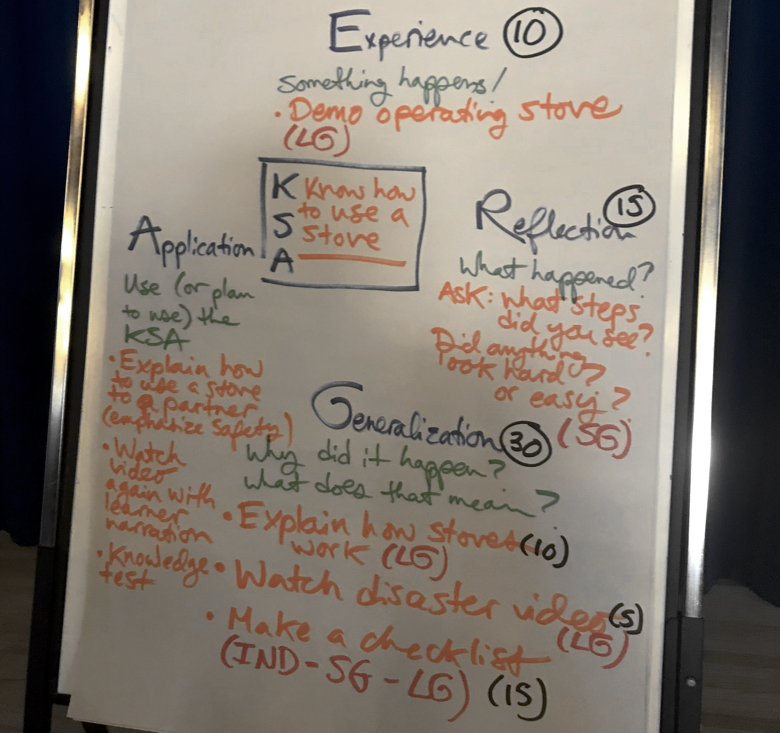 Experience 10
Something happens!
• Demo operating stove
(LG)
K Know how
S to use a
A stove
Reflection 15
What happened?
ASK: What steps
did you see?
Did anything
look hard?
or easy?
(SG)
Generalization 30
Why did it happen?
What does that mean?
• Explain how stoves (10)
work (LG)
• Watch disaster video (5)
(LG)
• Make a checklist
(IND - SG - LG) (15)
Application
Use (or plan
to use) the
KSA
• Explain how
to use a stove
to a partner
(emphasize safety)
• Watch
video
again with
learner
narration
• Knowledge
test